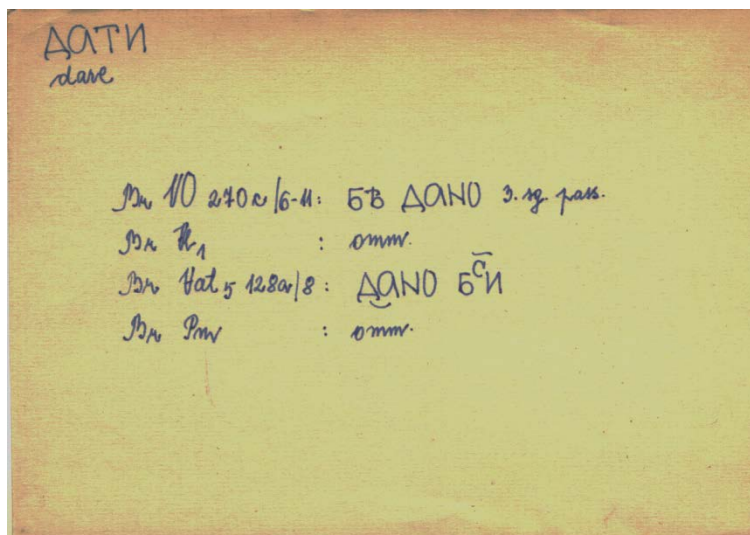 ДАТИ
dare
Br VO 270c/6-11: БВ ДАНО 3. sg. pass.
Br N₁ : omm.
Br Vat₅ 128a/8: ДАНО БС҃И
Br Pm : omm.